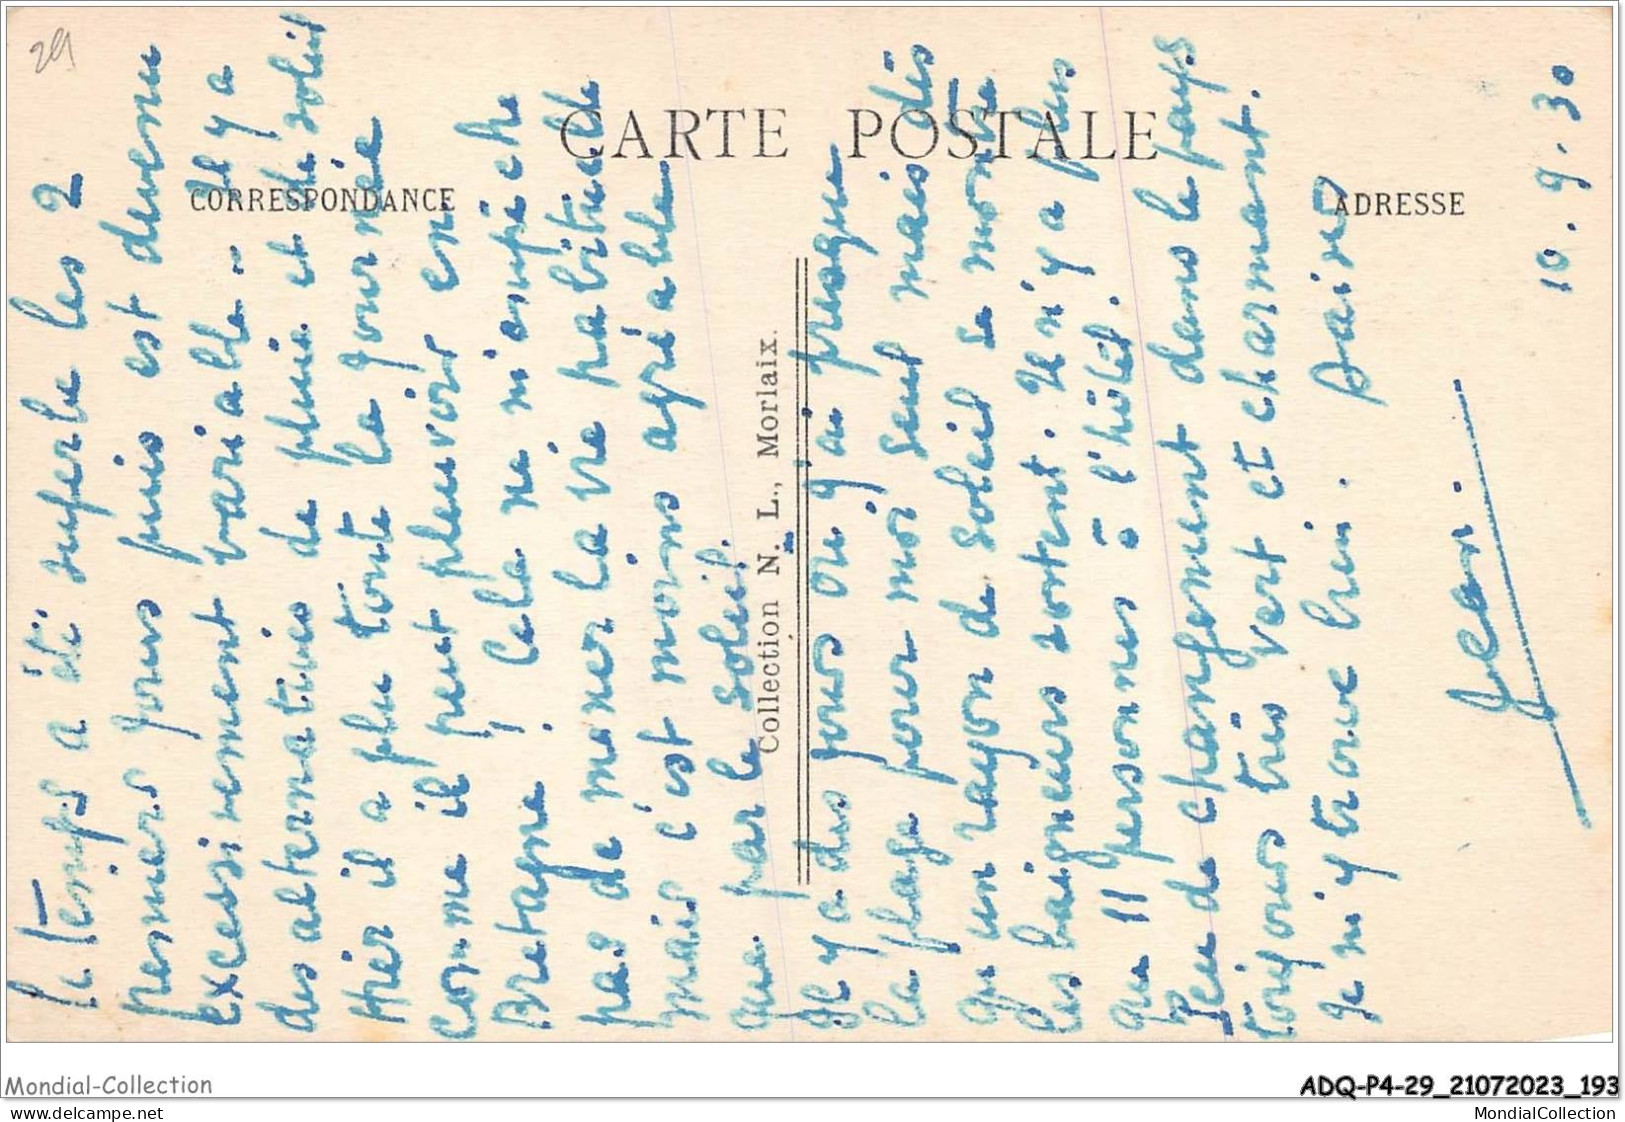 29
CARTE POSTALE
CORRESPONDANCE
ADRESSE
Collection N. L., Morlaix.
Le temps a été superbe les 2
premiers jours puis est devenu
excessivement variable.. Il y a
des alternatives de pluie et de soleil
Hier il a plu toute la journée
comme il peut pleuvoir en
Bretagne ! Cela ne m'empêche
pas de mener la vie habituelle
mais c'est moins agréable
que par le soleil.
Il y a des jours où j'ai presque
la plage pour moi seul mais dès
qu'un rayon de soleil se montre
les baigneurs sortent. Il n'y a plus
que 11 personnes à l'hôtel.
Peu de changement dans le pays
toujours très vert et charmant.
Je m'y trouve bien.
Jean.
10.9.30
Mondial-Collection
ADQ-P4-29_21072023_193
www.delcampe.net
MondialCollection